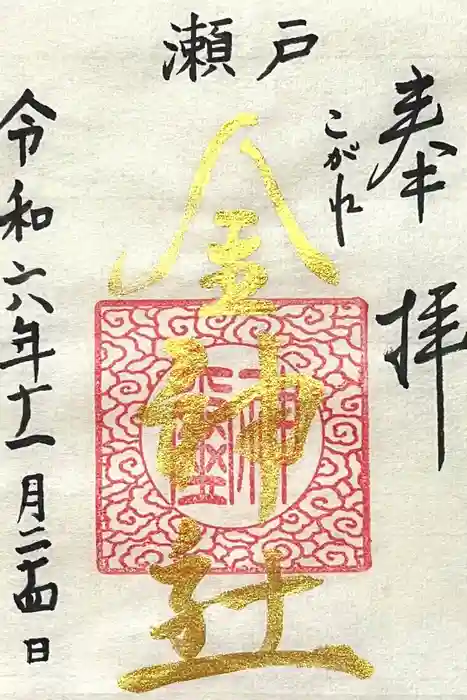 瀬戸
奉拝
こがね
金神社
令和六年十一月二十四日